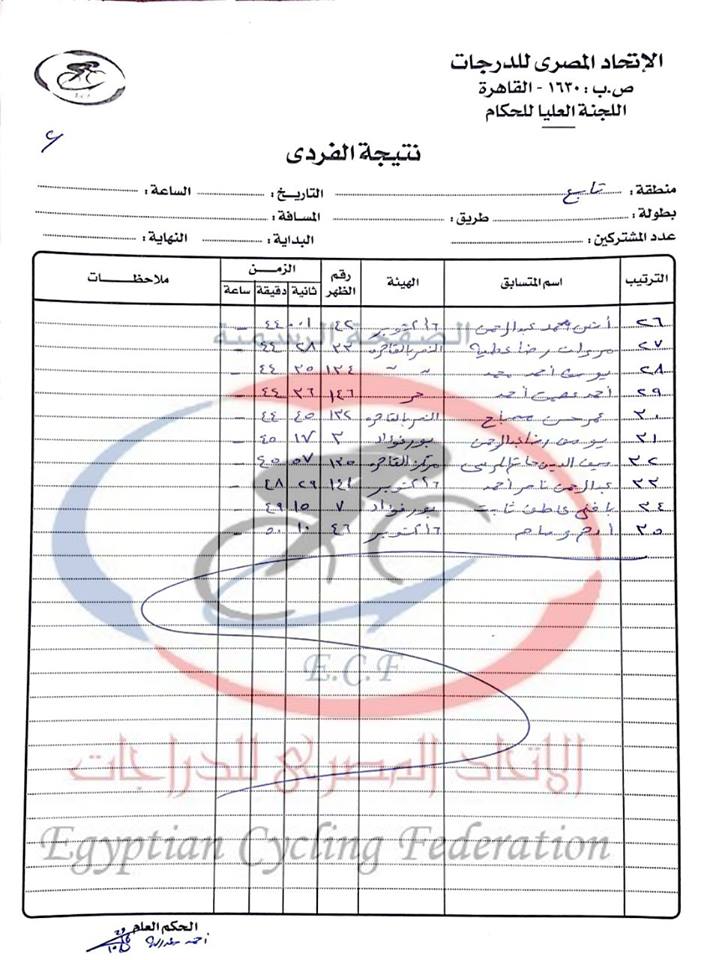 الإتحاد المصرى للدرجات
ص.ب : ١٦٣٠ - القاهرة
اللجنة العليا للحكام
نتيجة الفردى
منطقة : تابع التاريخ : الساعة :
بطولة : طريق : المسافة :
عدد المشتركين : البداية : النهاية :
الترتيب اسم المتسابق الهيئة رقم الظهر الزمن ثانية دقيقة ساعة ملاحظات
٢٦ محمد عبدالرحمن ٦ اكتوبر ١٤٢ ٠١ ٤٤ -
٢٧ مروان رضا عطية النصر بالقاهرة ٣٣ ٢٨ ٤٤ -
٢٨ يوسف احمد محمد " " ١٣٤ ٣٥ ٤٤ -
٢٩ أحمد أحمد حر ١٤٦ ٣٦ ٤٤ -
٣٠ عمر حسن مصباح النصر بالقاهرة ١٣٢ ٤٥ ٤٤ -
٣١ يوسف رضا عبدالرحمن بورفؤاد ٣ ١٧ ٤٥ -
٣٢ سيف الدين حاتم المرسى مركز القاهرة ١٣٥ ٥٧ ٤٥ -
٣٣ عبدالرحمن تامر أحمد ٦ اكتوبر ١٤١ ٢٩ ٤٨ -
٣٤ عاطف ثابت بورفؤاد ٧ ١٥ ٤٩ -
٣٥ أدهم سامح ٦ اكتوبر ٤٦ ١٠ ٥٠ -
الصفحة الرسمية
E.C.F
الاتحاد المصرى للدراجات
Egyptian Cycling Federation
الحكم العام
أحمد